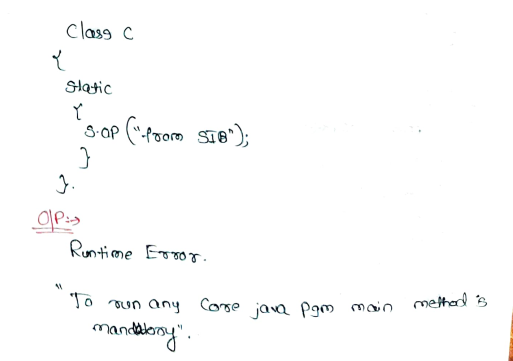 Class C
{
static
{
S.OP ("from SIB");
}
}.
O/P:→
Runtime Error.
"To run any Core java Pgm main method is
mandatory".